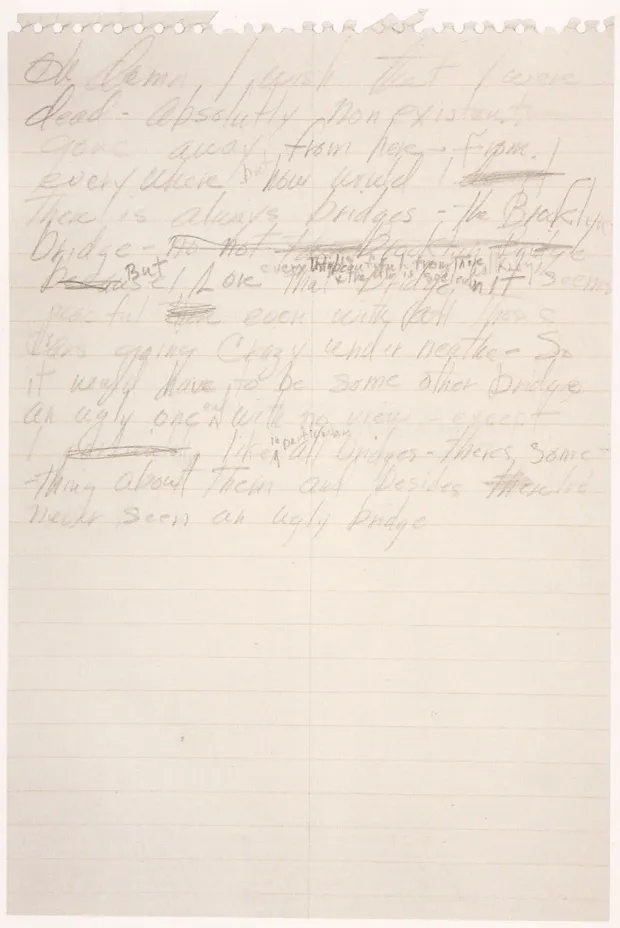 Oh damn I wish that I were
dead - absolutly nonexistent
gone away from here - from
everywhere but how would I
There is always bridges - the Brooklyn
bridge - no not the Brooklyn Bridge
because But I love that bridge everything is beautiful from there & the air is so clean it seems
peaceful there even with all those
cars going crazy underneathe - So
it would have to be some other bridge
an ugly one with no view - except
I in particular like all bridges - theres some-
thing about them and besides then Ive
never seen an ugly bridge